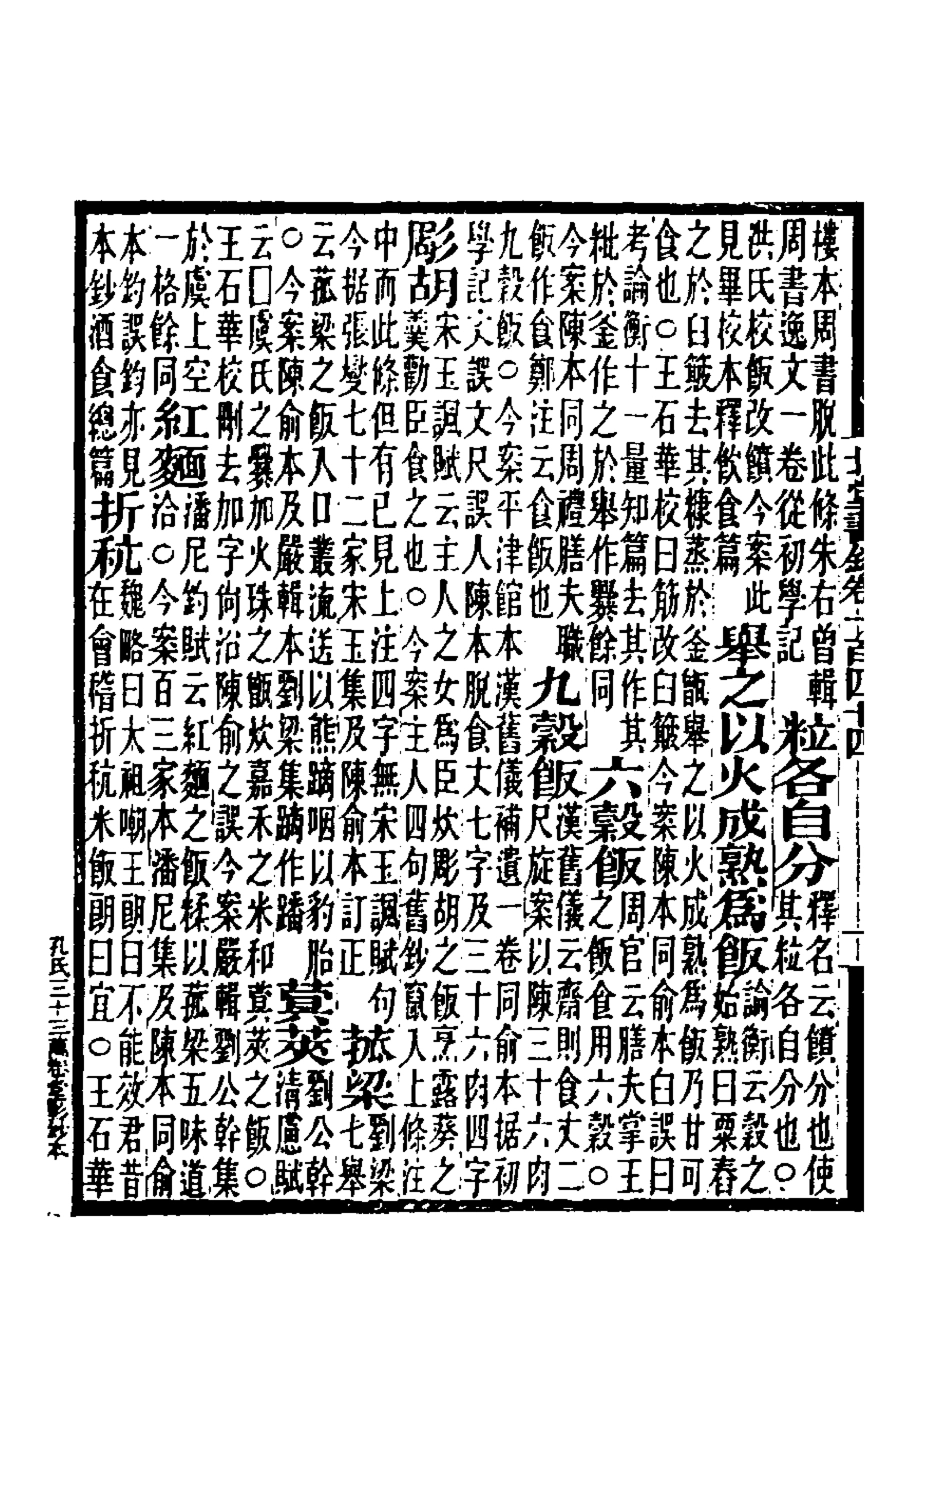 樓本周書脫此條朱右曾輯
周書逸文一卷從初學記
粒各自分
釋名云饙分也使
其粒各自分也○
洪氏校飯改饙今案此
見畢校本釋飲食篇
舉之以火成熟爲飯
論衡云穀之
始熟曰粟舂
之於臼簸去其糠蒸於釜甑舉之以火成熟爲飯乃甘可
食也○王石華校曰筯改臼簸今案陳本同俞本臼誤曰
考論衡十一量知篇去其作其
粃於釜作之於舉作爨餘同
六穀飯
周官云膳夫掌王
之飯食用六穀○
今案陳本同周禮膳夫職
飯作食鄭注云食飯也
九穀飯
漢舊儀云齋則食丈二
尺旋案以陳三十六肉
九穀飯○今案平津館本漢舊儀補遺一卷同俞本据初
學記丈誤文尺誤人陳本脫食丈七字及三十六肉四字
彫胡
宋玉諷賦云主人之女爲臣炊彫胡之飯烹露葵之
羹勸臣食之也○今案主人四句舊鈔竄入上條注
中而此條但有已見上注四字無宋玉諷賦句
今据張燮七十二家宋玉集及陳俞本訂正
菰梁
劉梁
七舉
云菰梁之飯入口叢流送以熊蹢咽以豹胎
○今案陳俞本及嚴輯本劉梁集蹢作蹯
蓂莢
劉公幹
清慮賦
云□虞氏之爨加火珠之甑炊嘉禾之米和蓂莢之飯○
王石華校刪去加字尙沿陳俞之誤今案嚴輯劉公幹集
於虞上空
一格餘同
紅麵
潘尼釣賦云紅麵之飯糅以菰梁五味道
洽○今案百三家本潘尼集及陳本同俞
本釣誤鈞亦見
本鈔酒食總篇
折秔
魏略曰太祖嘲王朗曰不能效君昔
在會稽折秔米飯朗曰宜○王石華
北堂書鈔卷一百四十四
孔氏三十三萬卷堂影鈔本